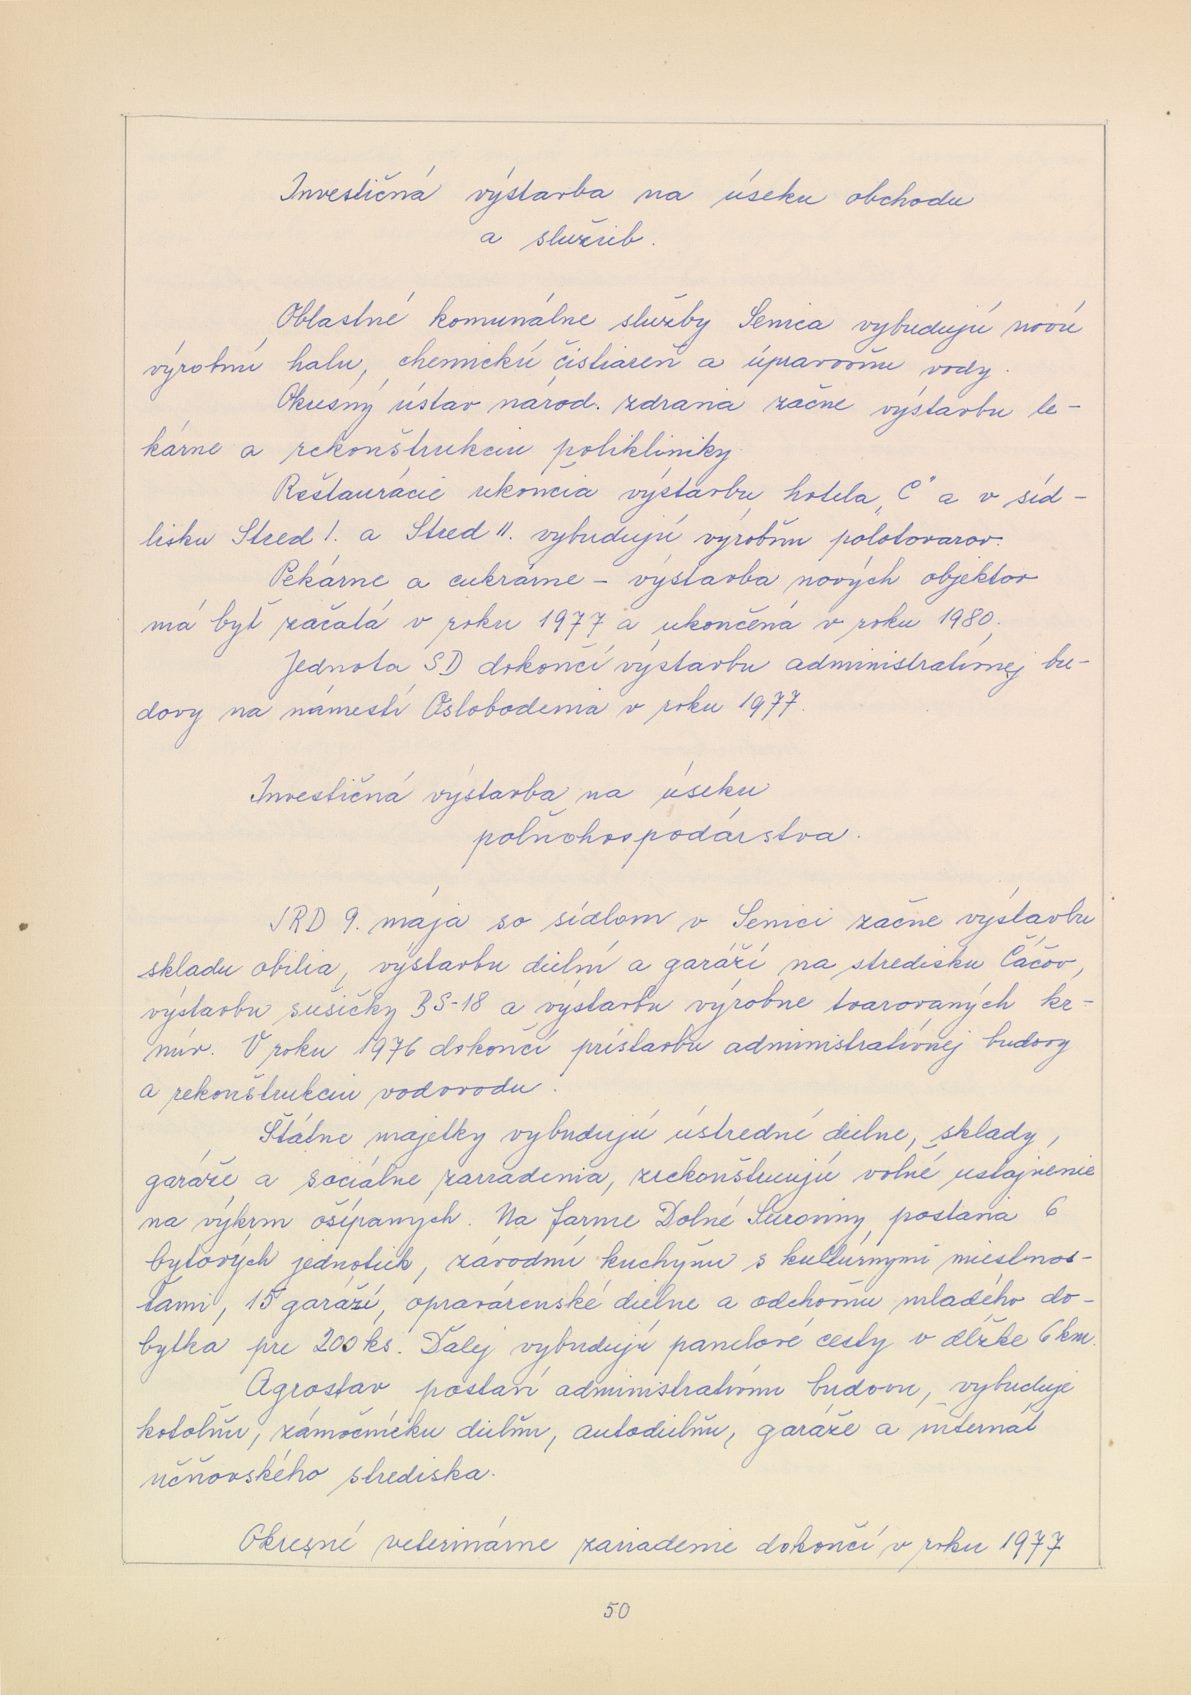 Investičná výstavba na úseku obchodu
a služieb.
Oblastné komunálne služby Senica vybudujú novú
výrobnú halu, chemickú čistiareň a úpravovňu vody.
Okresný ústav národ. zdravia začne výstavbu le-
kárne a rekonštrukciu polikliniky.
Reštaurácie ukončia výstavbu hotela „C" a v síd-
lisku Stred I. a Stred II. vybudujú výrobňu polotovarov.
Pekárne a cukrárne – výstavba nových objektov
má byť začatá v roku 1977 a ukončená v roku 1980.
Jednota SD dokončí výstavbu administratívnej bu-
dovy na námestí Oslobodenia v roku 1977.
Investičná výstavba na úseku
poľnohospodárstva.
JRD 9. mája so sídlom v Senici začne výstavbu
skladu obilia, výstavbu dielní a garáží na stredisku Čáčov,
výstavbu sušičky BS-18 a výstavbu výrobne tvarovaných kr-
mív. V roku 1976 dokončí prístavbu administratívnej budovy
a rekonštrukciu vodovodu.
Štátne majetky vybudujú ústredné dielne, sklady,
garáže a sociálne zariadenia, zrekonštruujú voľné ustajnenie
na výkrm ošípaných. Na farme Dolné Suroviny postavia 6
bytových jednotiek, závodnú kuchyňu s kultúrnymi miestnos-
ťami, 15 garáží, opravárenské dielne a odchovňu mladého do-
bytka pre 200 ks. Ďalej vybudujú panelové cesty v dĺžke 6 km.
Agrostav postaví administratívnu budovu, vybuduje
kotolňu, zámočnícku dielňu, autodielňu, garáže a internát
učňovského strediska.
Okresné veterinárne zariadenie dokončí v roku 1977
50